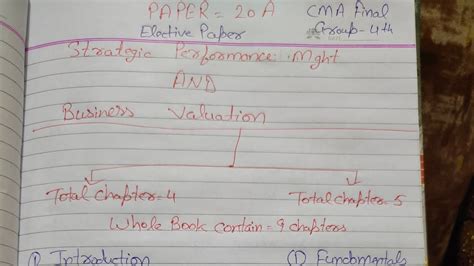 PAPER = 20A
CMA Final
Elective Paper
Group - 4th
Strategic Performance Mght
AND
Business Valuation
Total Chapter = 4
Total Chapter = 5
Whole Book contain = 9 chapters
① Introduction
① Fundamentals